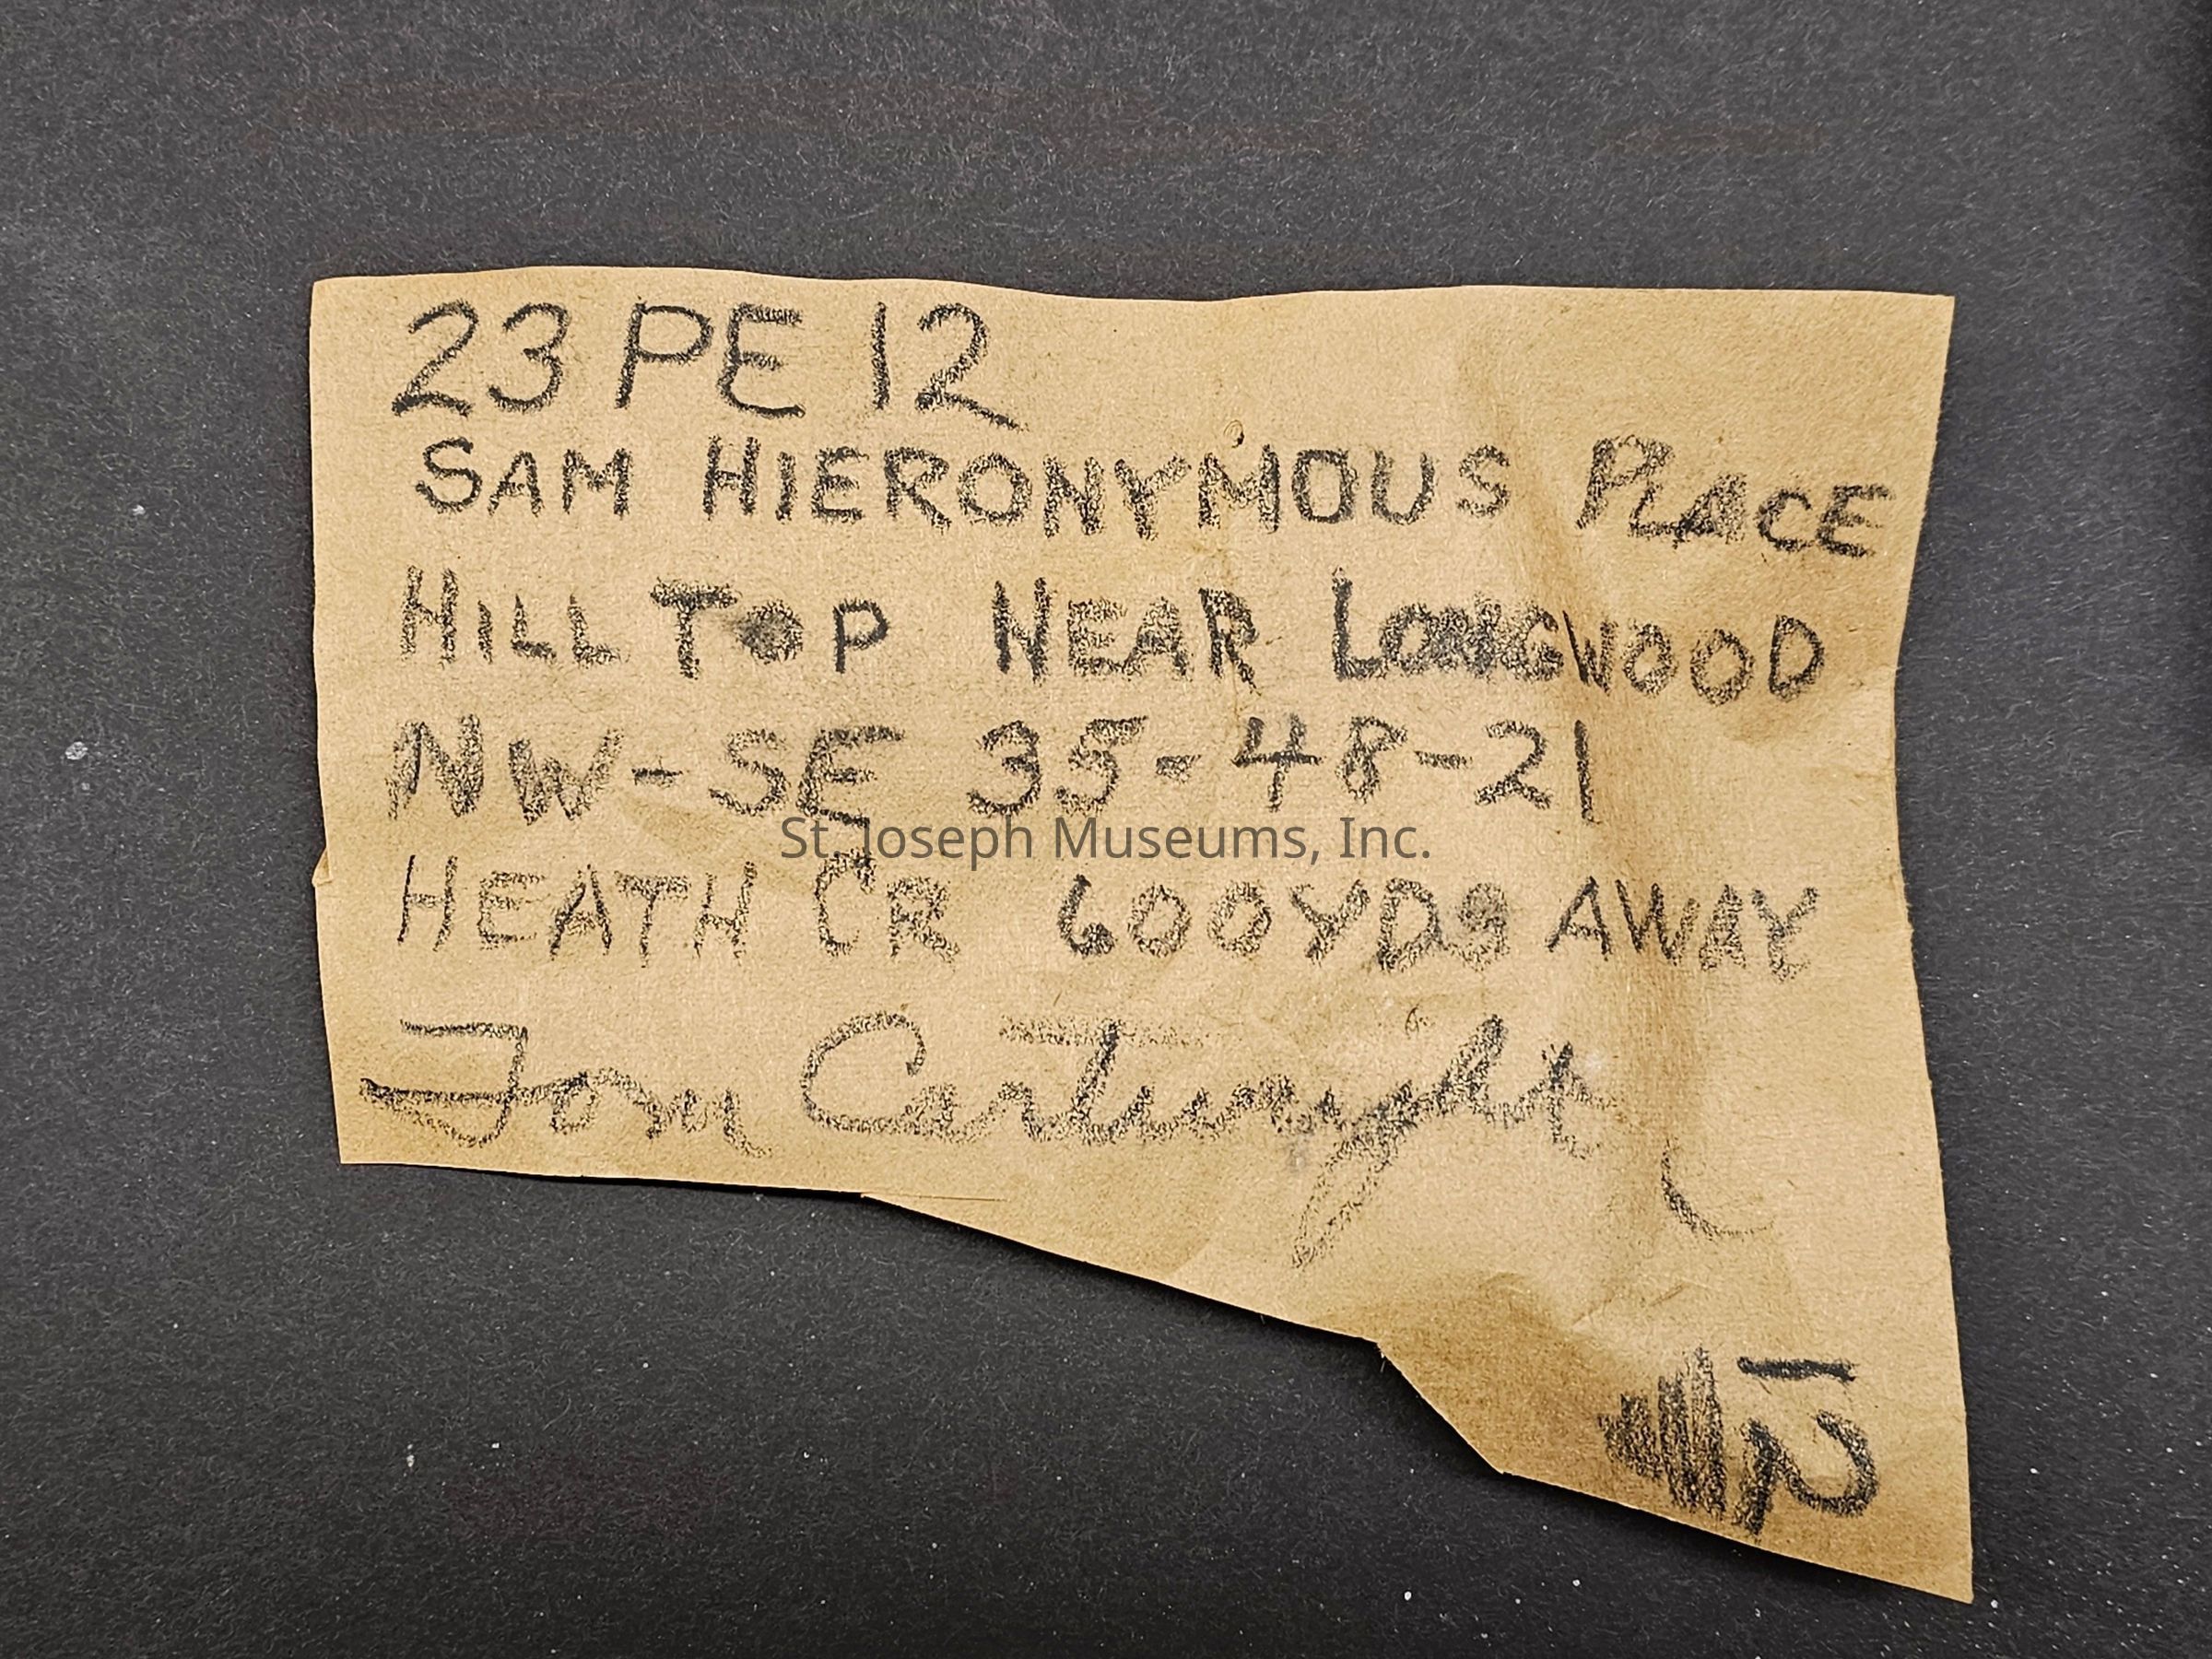 23 PE 12
SAM HIERONYMOUS PLACE
HILL TOP NEAR LONGWOOD
NW-SE 35-48-21
St. Joseph Museums, Inc.
HEATH CR 600YDS AWAY
Tom Cartwright
12